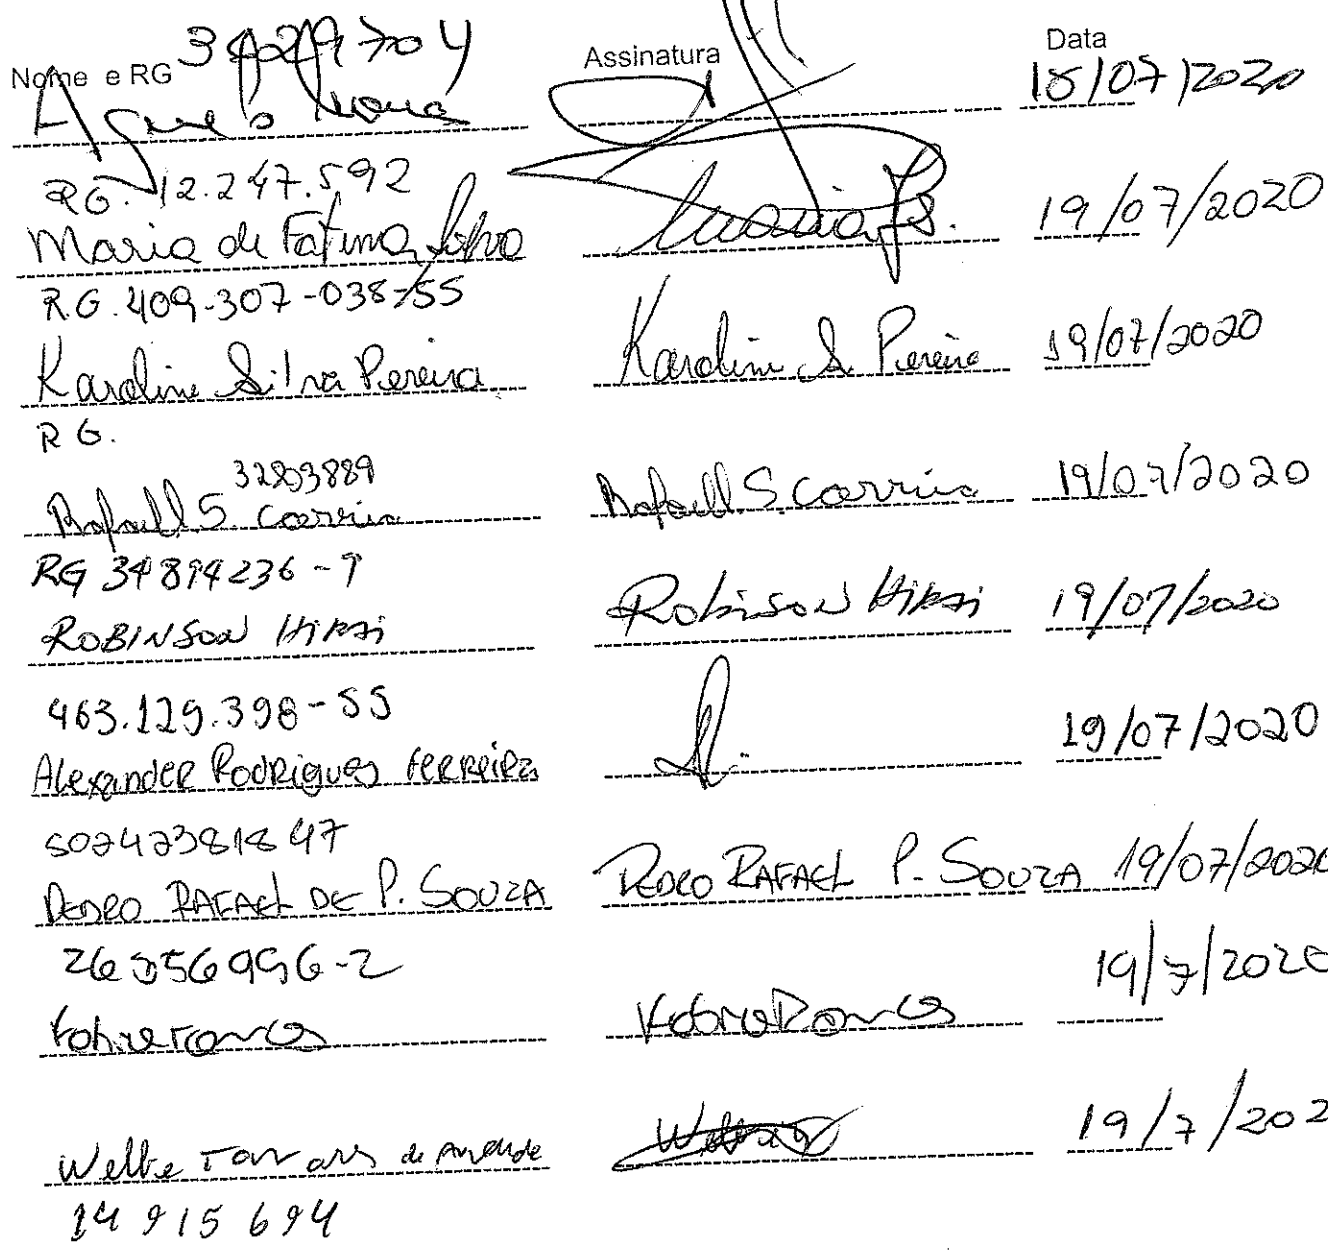 Nome e RG 34029704 Assinatura Data
18/07/2020
RG. 12.247.592
Maria de Fatima Silva Maria F S. 19/07/2020
R.G. 409-307-038-55
Karoline Silva Pereira Karoline S Pereira 19/07/2020
RG.
32803889
Rafaell S. Correia Rafaell S. Correia 19/07/2020
RG 34894236-9
ROBINSON HIRAI Robinson Hirai 19/07/2020
463.129.398-55
Alexander Rodrigues Ferreira 19/07/2020
50242381847
PEDRO RAFAEL DE P. SOUZA PEDRO RAFAEL P. SOUZA 19/07/2020
26356996-2 19/7/2020
Welbe Tavares de Andrade 19/7/202
14 915 694